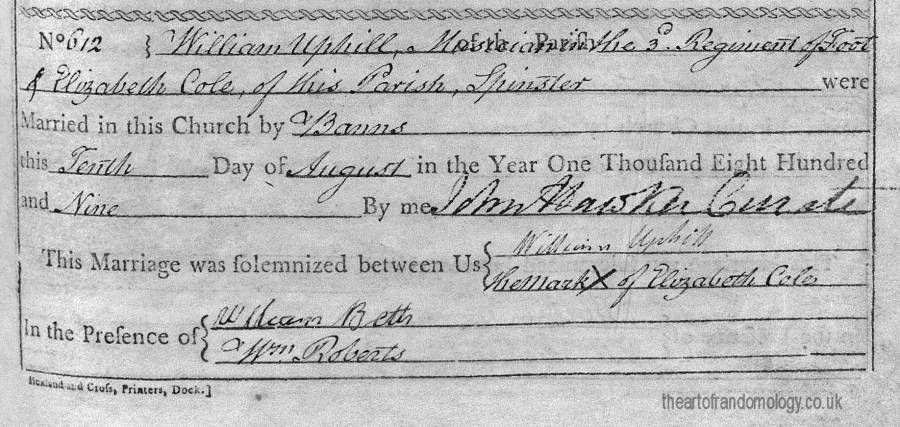 No 612 } William Uphill, Musician in the 3d. Regiment of Foot
& Elizabeth Cole, of this Parish, Spinster were
Married in this Church by Banns
this Tenth Day of August in the Year One Thouſand Eight Hundred
and Nine By me John Hawker Currate
This Marriage was ſolemnized between Us { William Uphill
the Mark X of Elizabeth Cole
In the Preſence of { William Beth
Wm. Roberts
and Croſs, Printers, Dock.]
theartofrandomology.co.uk